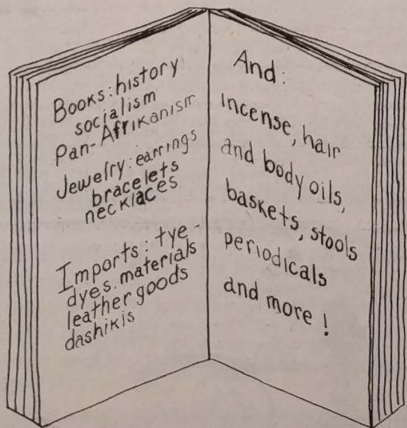 Books: history
socialism
Pan-Afrikanism
Jewelry: earrings
bracelets
necklaces
Imports: tye-
dyes. materials
leather goods
dashikis
And:
incense, hair
and body oils,
baskets, stools
periodicals
and more!